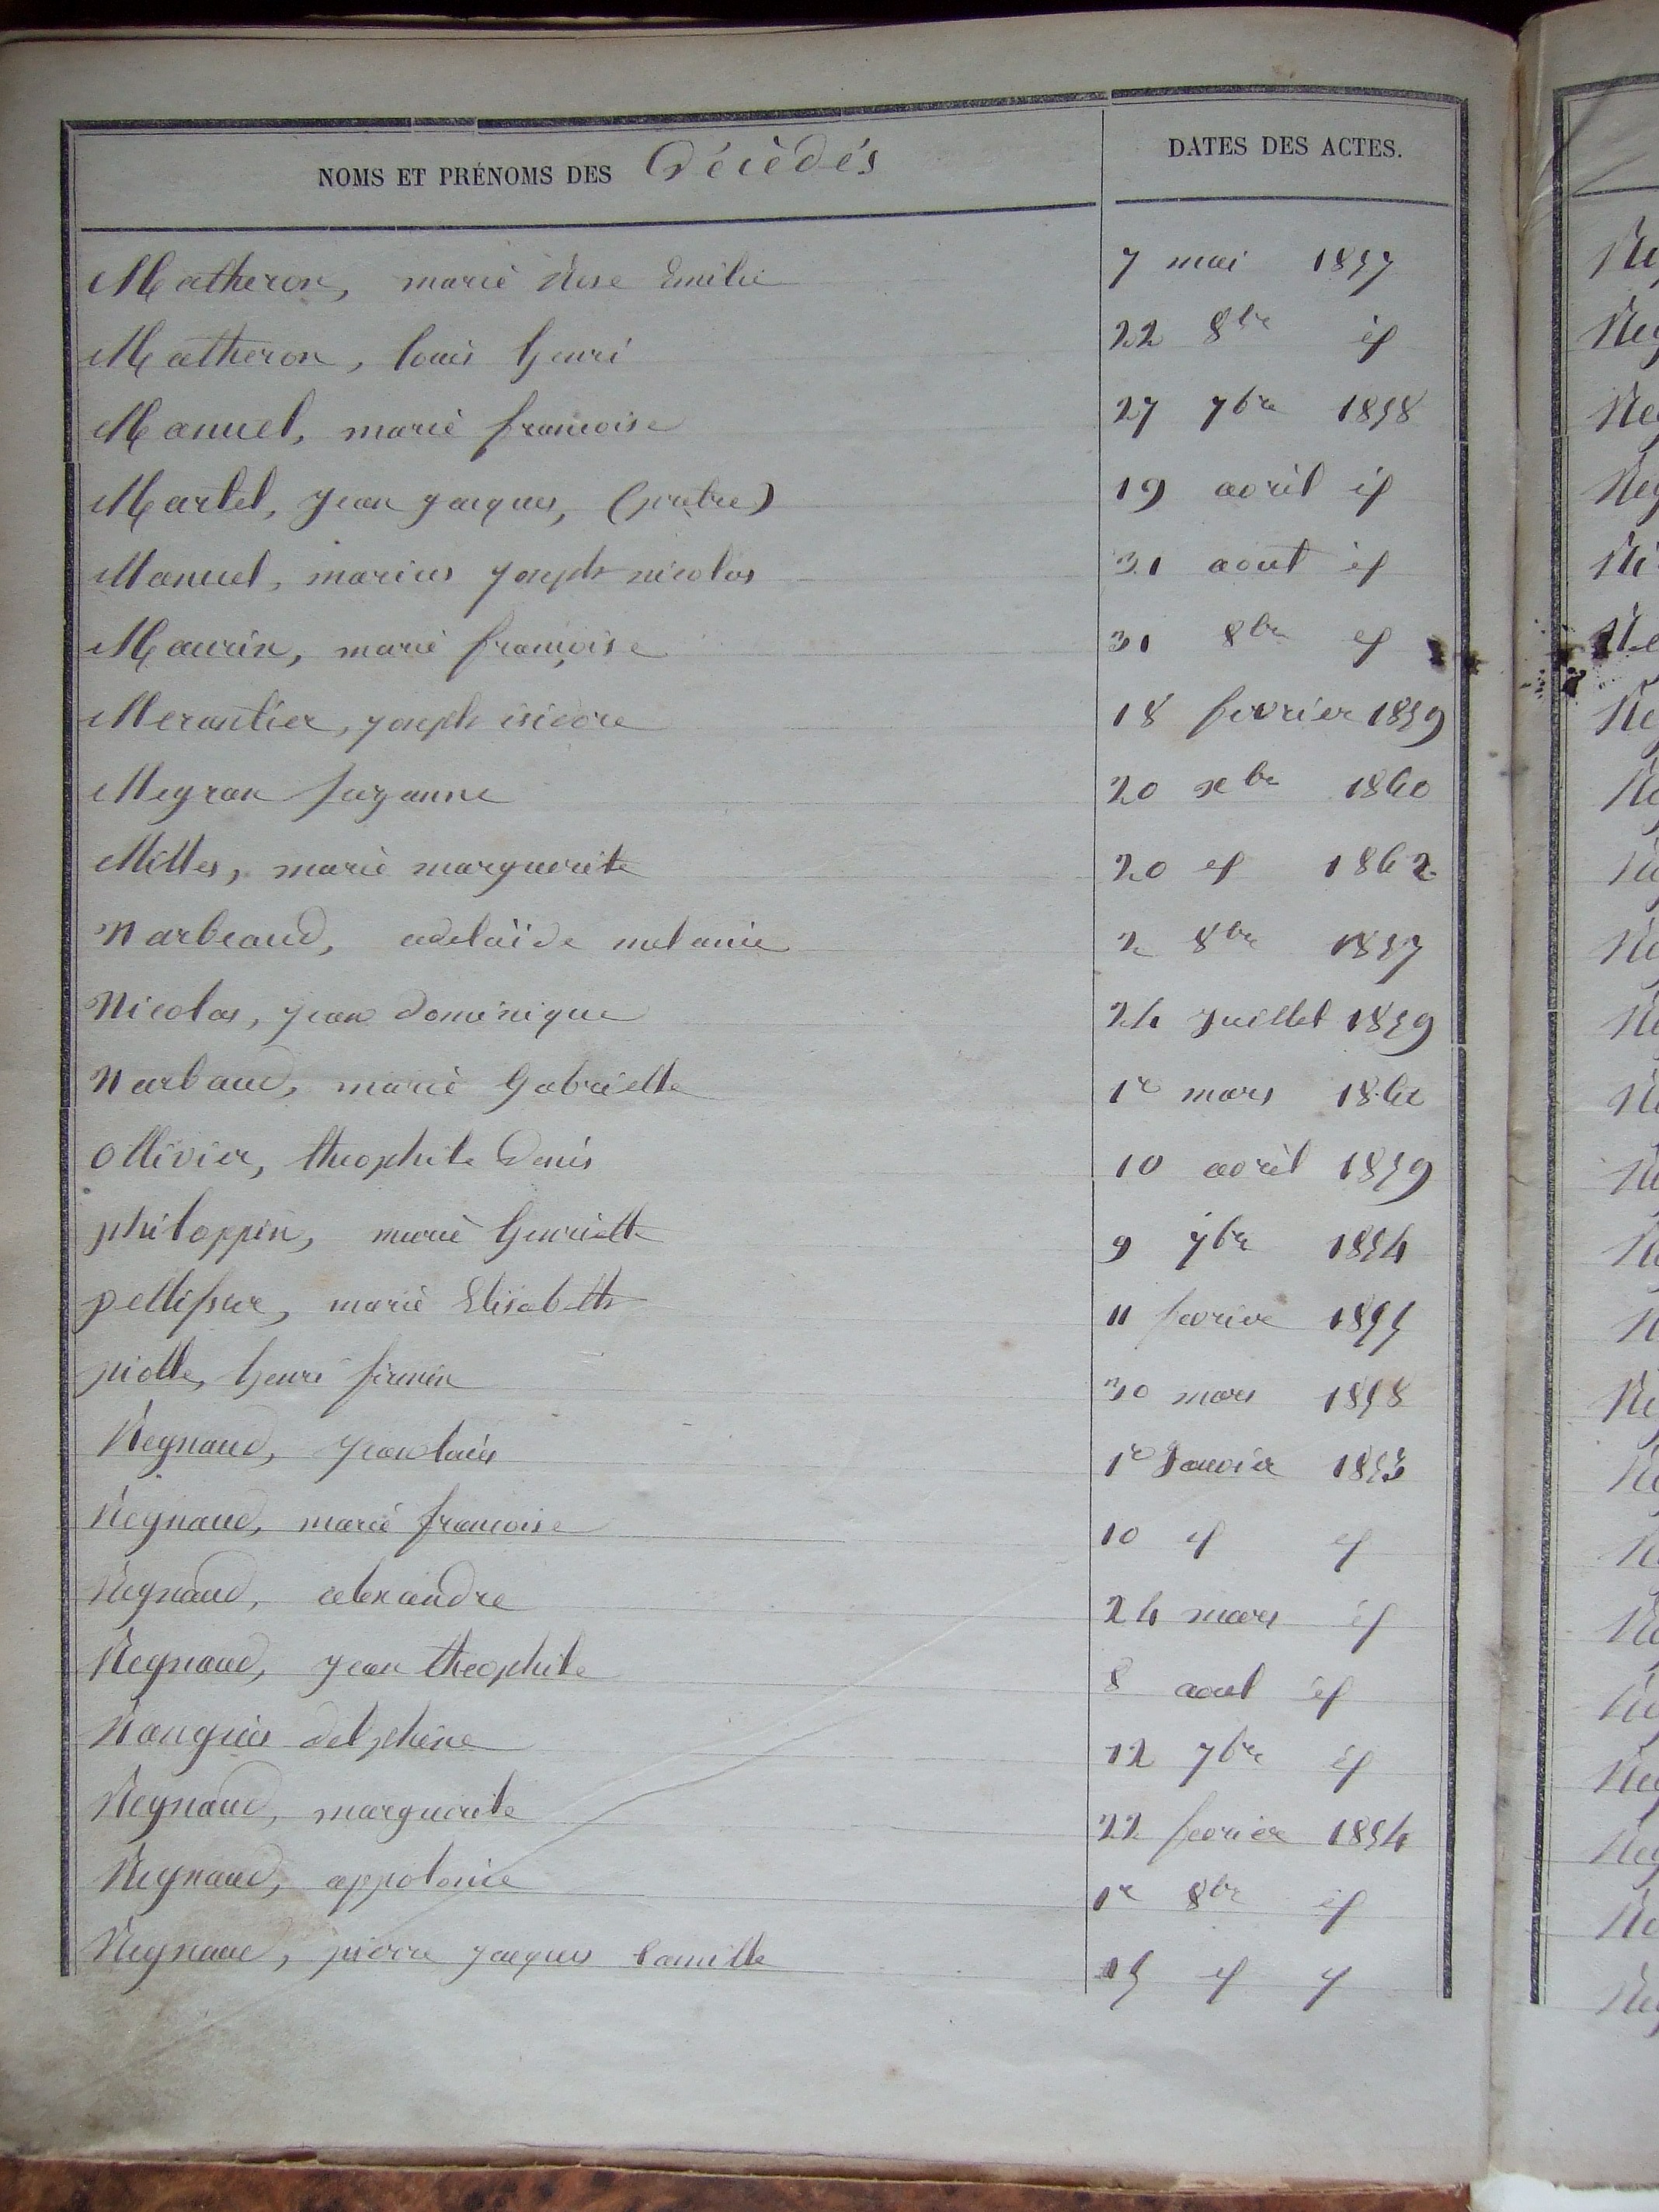 NOMS ET PRÉNOMS DES Décèdés DATES DES ACTES.
Matheron, marie Rose Emilie 7 mai 1857
Matheron, louis henri 22 8bre id
Manuel, marie francoise 27 7bre 1858
Martel, jean jacques, (pretre) 19 avril id
Manuel, marius joseph nicolas 31 aout id
Maurin, marie françoise 31 8bre id
Merantier, joseph isidore 18 fevrier 1859
Meyran suzanne 20 xbre 1860
Milles, marie marguerite 20 id 1862
Narbeaud, adelaïde melanie 2 8bre 1857
Nicolas, jean dominique 24 juillet 1859
Narbaud, marie Gabrielle 1er mars
Ollivier, theophile Denis 10 avril 1859
philoppin, marie henriette 9 7bre 1854
pellissier, marie Elisabeth 11 fevrier 1855
piolle, henri firmin 30 mars 1858
Reynaud, jean louis 1er Janvier 1853
Reynaud, marie francoise 10 id id
Reynaud, alexandre 24 mars id
Reynaud, jean theophile 8 aout id
Rouguier delphine 12 7bre id
Reynaud, marguerite 22 fevrier 1854
Reynaud, appolonie 1er 8bre id
Reynaud, pierre jacques camille 15 id id